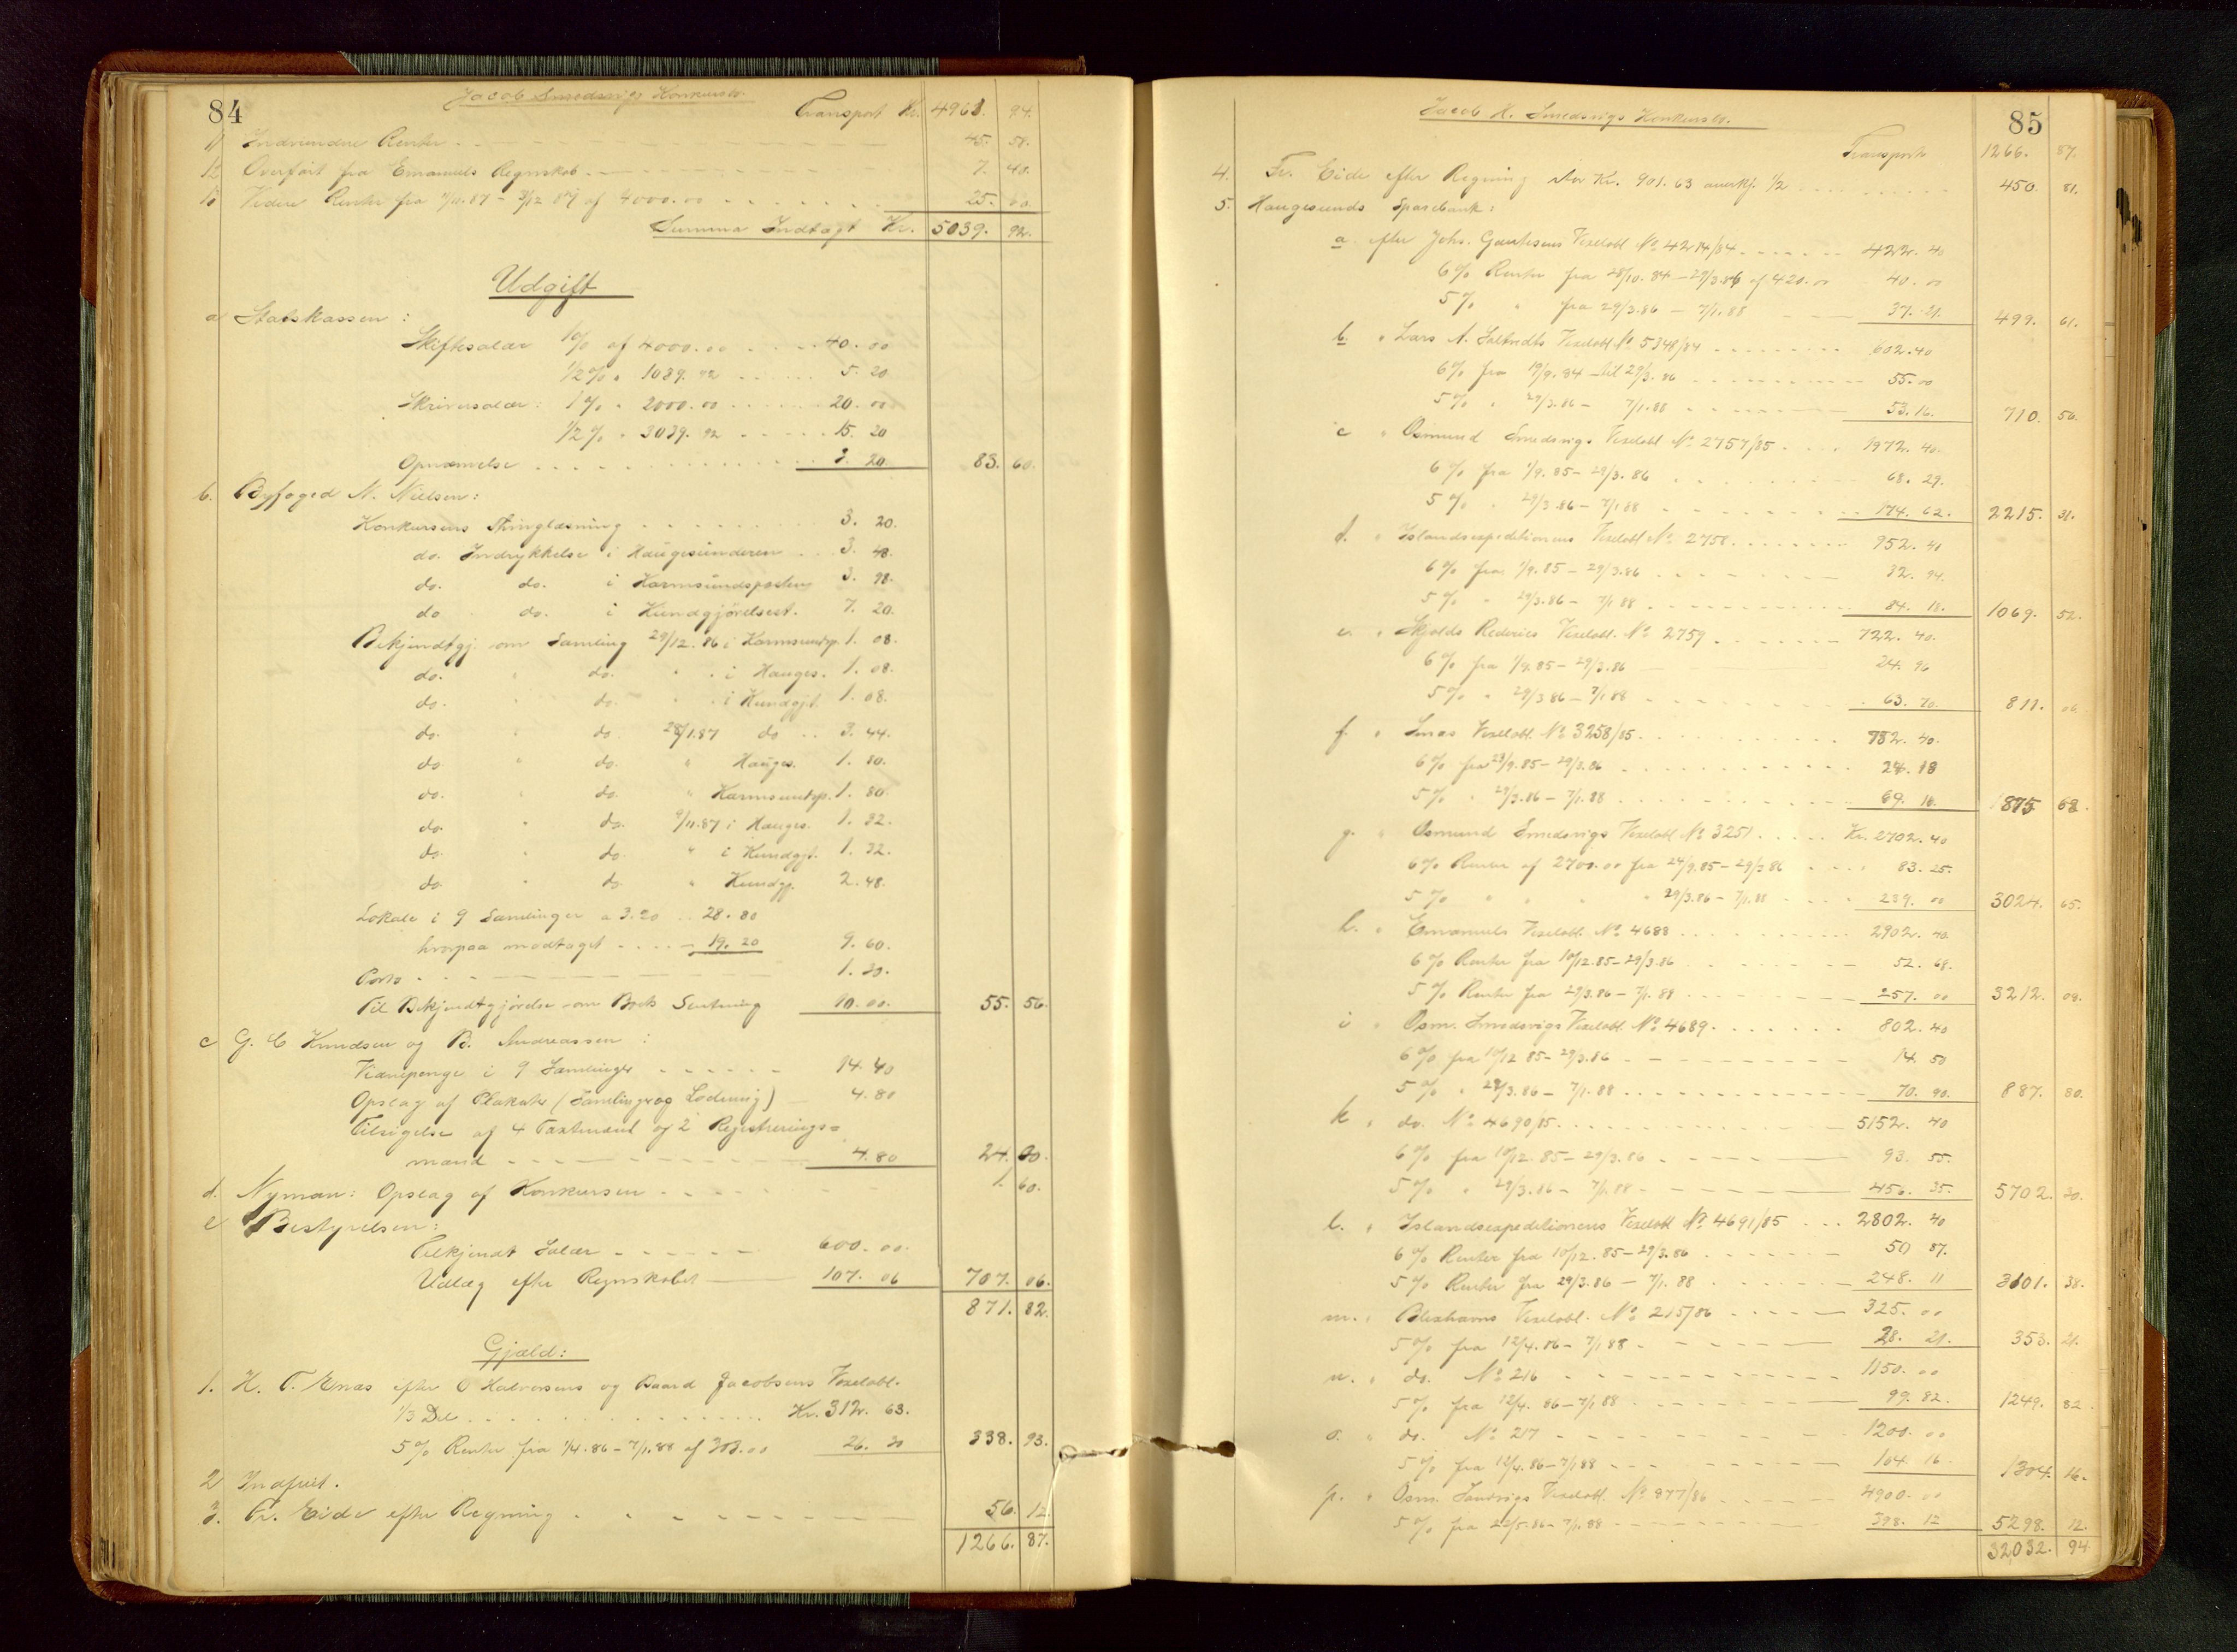 84
Jacob Smedsvigs Konkursbo.
Transport Kr. 4961. 94.
11 Indvundne Renter 45. 58.
12 Overført fra Emanuels Regnskab 7. 40.
13 Videre Renter fra 7/11.87 - 31/12 87 af 4000.00 25. 00.
Summa Indtægt Kr. 5039. 92.
Udgift
a Statskassen:
Skiftesalær 1% af 4000.00 40. 00
1/2% " 1039. 92 5. 20
Skriversalær: 1% " 2000.00 20. 00
1/2% " 3039. 92 15. 20
Opnævnelse 3. 20. 83. 60.
b. Byfoged N. Nielsen:
Konkursens Thinglæsning 3. 20.
do. Indrykkelse i Haugesunderen 3. 48.
do. do. i Karmsundsposten 3. 98.
do do. i Kundgjörelsest. 7. 20.
Bekjendtgj. om Samling 29/12.86 i Karmsundsp. 1. 08.
do. " do. " " i Hauges. 1. 08.
do. " do. " " i Kundgjt. 1. 08.
do. " do. 28/1.87 do 3. 44.
do. " do. " Hauges. 1. 80.
do. " do. " Karmsundsp. 1. 80.
do. " do. 9/11.87 i Hauges. 1. 32.
do. " do. " i Kundgjt. 1. 32.
do. " do. " Kundgj. 2. 48.
Lokale i 9 Samlinger a 3.20 28. 80
hvorpaa modtaget 19. 20 9. 60.
Porto 1. 30.
Til Bekjendtgjörelse om Boets Slutning 10. 00. 55. 56.
c G. C Knudsen og B. Andreassen:
Vidnepenge i 9 Samlinger 14. 40
Opslag af Plakater (Samlinger og Lodning) 4. 80
Tilsigelse af 4 Taxtmænd og 2 Registrerings=
mænd 4. 80 24. 00.
d. Nyman: Opslag af Konkursen 1. 60.
e Bestyrelsen:
Tilkjendt Salær 600. 00.
Udlæg efter Regnskabet 107. 06 707. 06.
871. 82.
Gjæld:
1. H. T. Enæs efter O Halvorsens og Baard Jacobsens Vexelobl.
1/3 Del Kr. 312. 63.
5% Renter fra 1/4.86 - 7/1.88 af 303.00 26. 30 338. 93.
2 Indfriet.
3. Fr. Eide efter Regning 56. 12.
1266. 87.
85
Jacob H. Smedsvigs Konkursbo.
Transport 1266. 87.
4. Fr. Eide efter Regning stor Kr. 901. 63 anerkj. 1/2 450. 81.
5. Haugesunds Sparebank:
a. efter Johs. Vexelobl No 4214/84 422. 40
6% Renter fra 28/10.84 - 29/3.86 af 420.00 40. 00
5% " fra 29/3.86 - 7/1.88 37. 21. 499. 61.
b. " Lars A. Vexelobl. No 5348/84 602. 40
6% fra 19/9.84 til 29/3.86 55. 00
5% " 29/3.86 - 7/1.88 53. 16. 710. 56.
c " Osmund Smedsvigs Vexelobl No 2757/85 1972. 40.
6% fra 1/9.85 - 29/3.86 68. 29.
5% " 29/3.86 - 7/1.88 174. 62. 2215. 31.
d. " Islandsexpeditionens Vexelobl No 2758 952. 40
6% fra 1/9.85 - 29/3.86 32. 94.
5% " 29/3.86 - 7/1.88 84. 18. 1069. 52.
e. " Skjolds Rederies Vexelobl. No 2759 722. 40.
6% fra 1/9.85 - 29/3.86 24. 96
5% " 29/3.86 - 7/1.88 63. 70. 811. 06
f. " Vexelobl. No 3258/85 782. 40.
6% fra 23/9.85 - 29/3.86 24. 18
5% " 29/3.86 - 7/1.88 69. 10. 875 68.
g. " Osmund Smedsvigs Vexelobl No 3251 Kr. 2702. 40
6% Renter af 2700.00 fra 24/9.85 - 29/3.86 83. 25.
5% " " " " 29/3.86 - 7/1.88 239. 00 3024. 65.
h. " Emanuels Vexelobl. No 4688 2902. 40.
6% Renter fra 10/12.85 - 29/3.86 52. 68.
5% Renter fra 29/3.86 - 7/1.88 257. 00 3212. 08.
i " Osm. Smedsvigs Vexelobl. No 4689 802. 40
6% fra 10/12 85 - 29/3.86 14. 50
5% " 29/3.86 - 7/1.88 70. 90. 887. 80.
k " do. No 4690/85 5152. 40
6% fra 10/12.85 - 29/3.86 93. 55.
5% " 29/3.86 - 7/1.88 456. 35. 5702. 30.
l. " Islandsexpeditionens Vexelobl No 4691/85 2802. 40
6% Renter fra 10/12.85 - 29/3.86 50 87.
5% Renter fra 29/3.86 - 7/1.88 248. 11 3101. 38.
m. " Vexelobl. No 215/86 325. 00
5% fra 12/4.86 - 7/1 88 28. 21. 353. 21.
n. " do. No 216 1150. 00
5% fra 12/4.86 - 7/1 88 99. 82. 1249. 82.
o. " do. No 217 1200. 00
5% fra 12/4.86 - 7/1 88 104 16 1304. 16.
p. " Osm. Vexelobl. No 877/86 4900. 00
5% fra 22/5.86 - 7/1.88 398. 12 5298. 12.
32032. 94